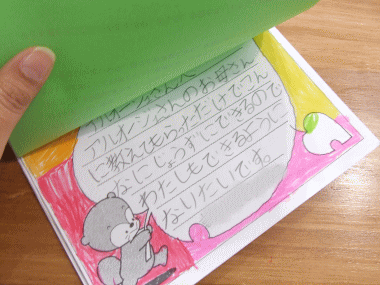 アルオーンさんのお母さん
に教えてもらっただけでこん
なにじょうずにできるので
わたしもできるように
なりたいです。